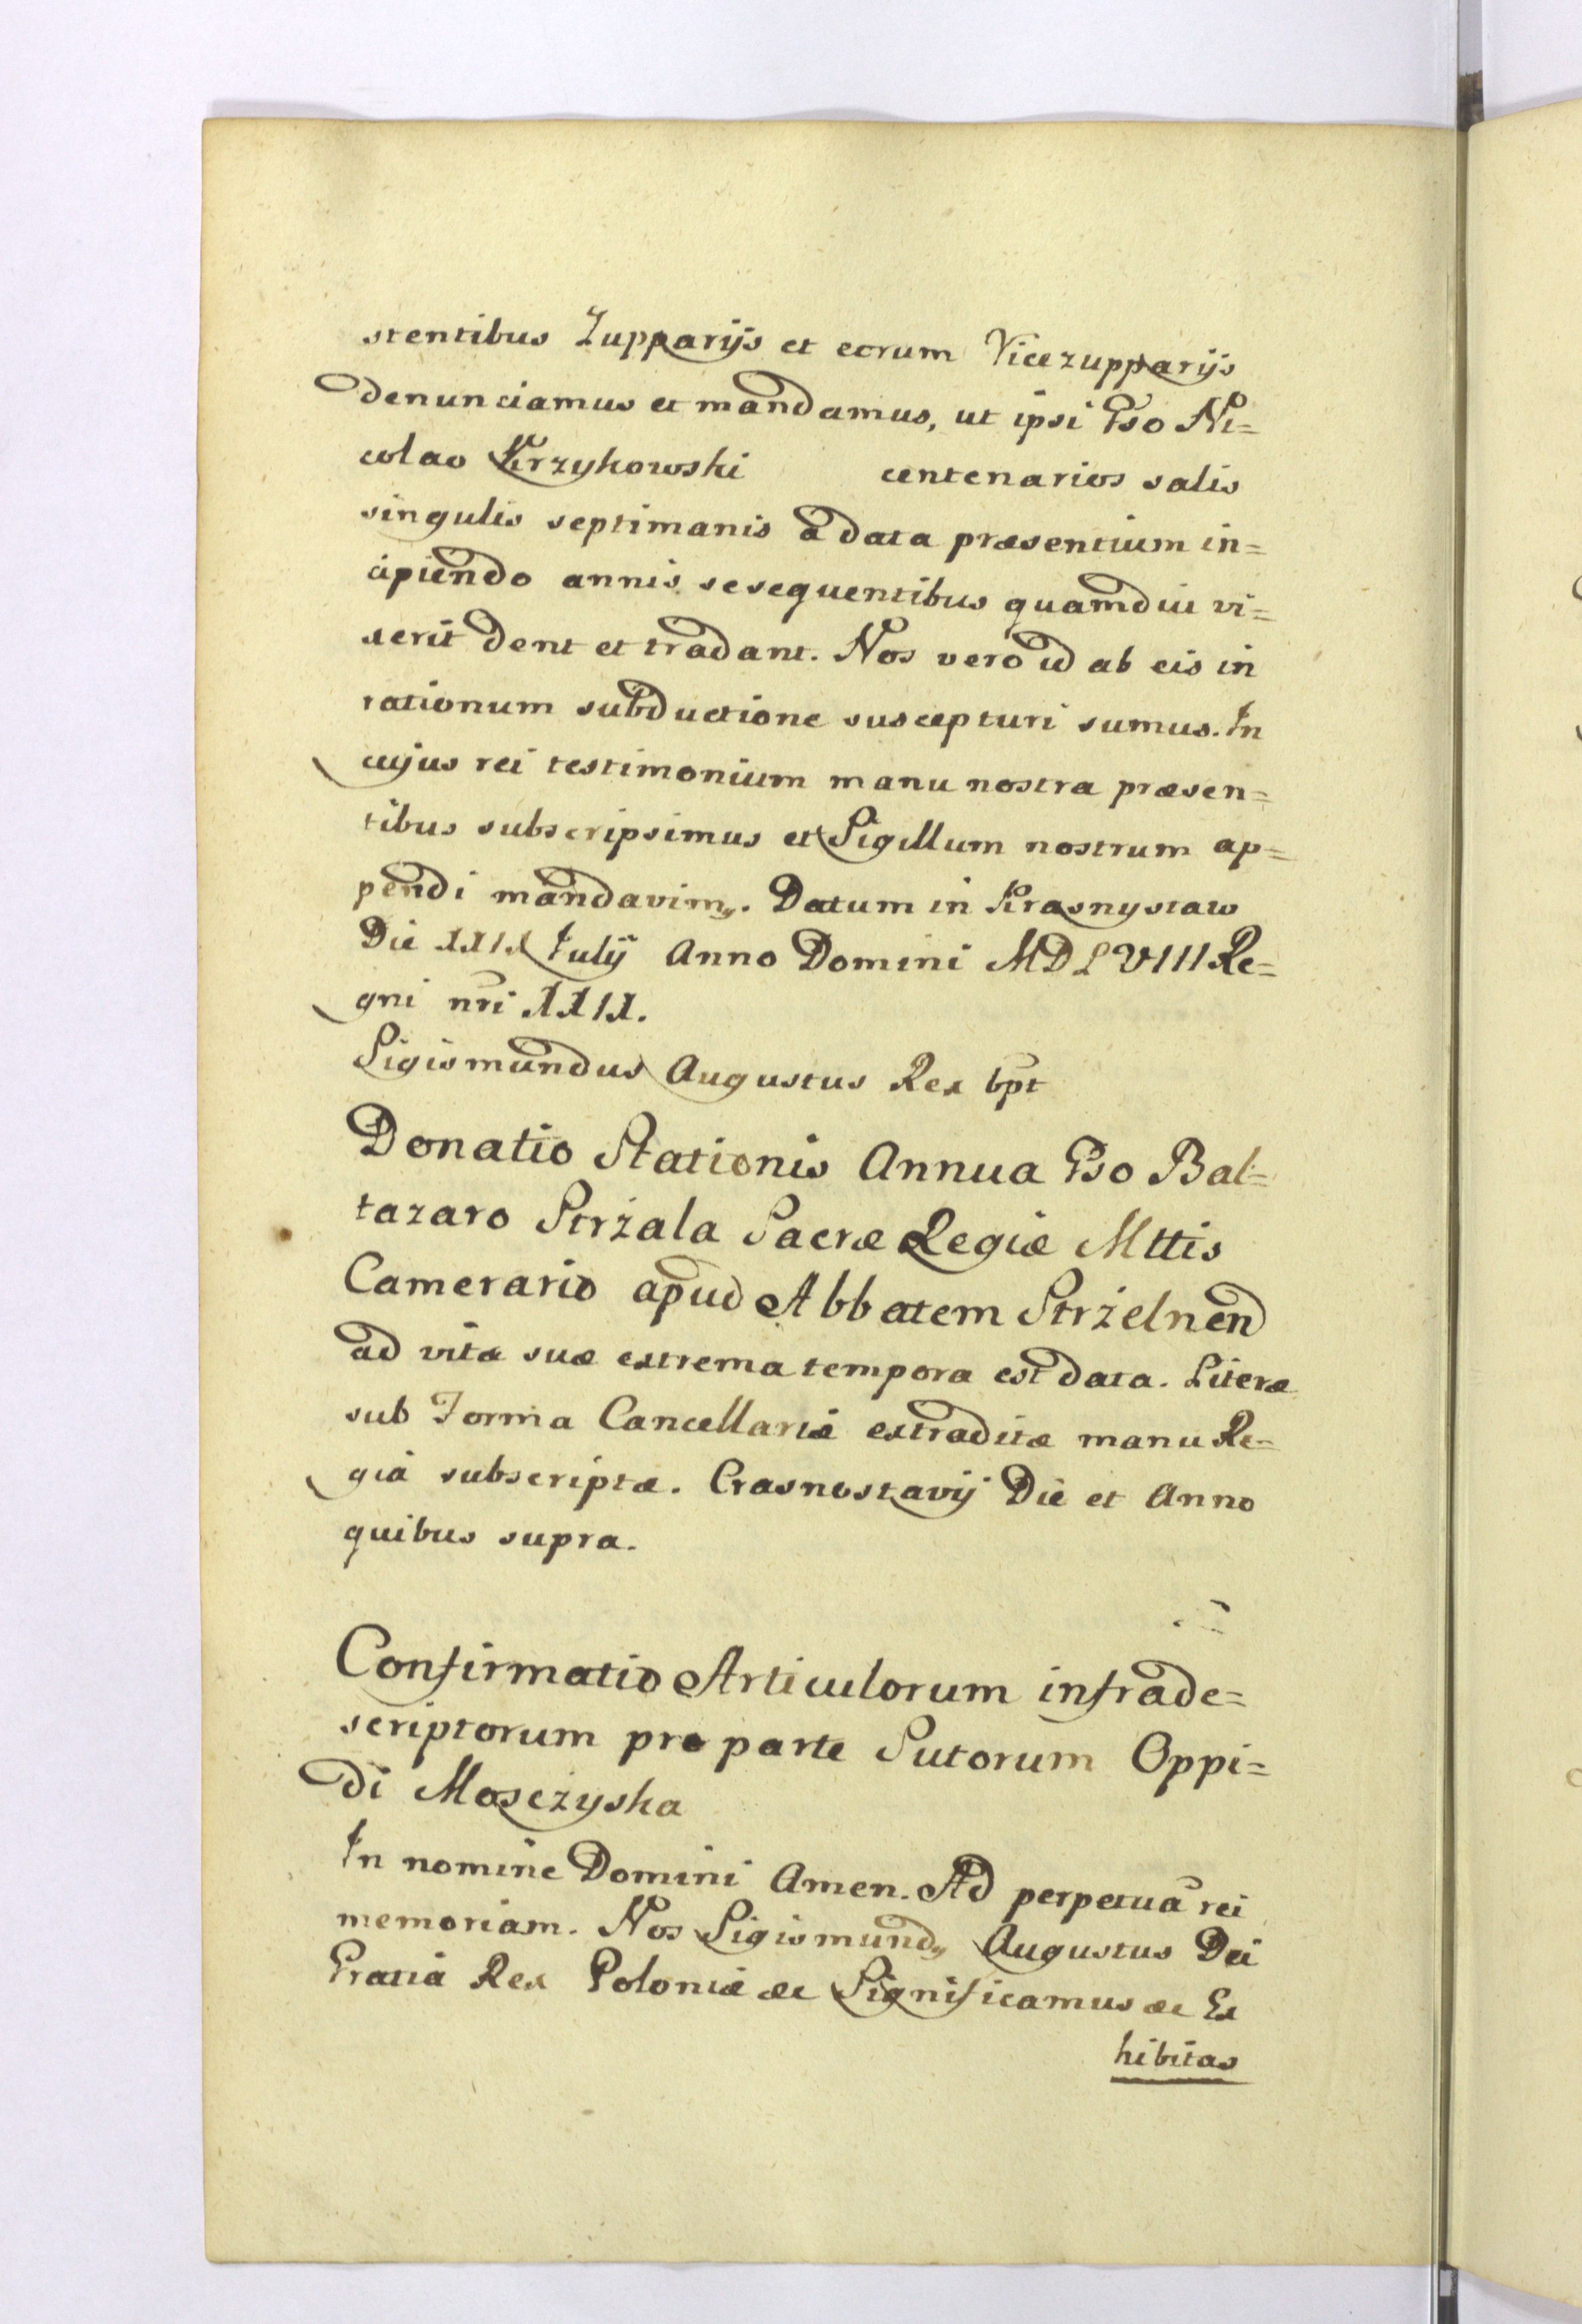 stentibus Zupparijs et eorum Vicezupparijs
denunciamus et mandamus, ut ipsi Gso Ni=
colao Krzykowski centenarios salis
singulis septimanis a data præsentium in=
cipiendo annis sesequentibus quamdiu vi=
xerit dent et tradant. Nos vero id ab eis in
rationum subductione suscepturi sumus. In
cujus rei testimonium manu nostra præsen=
tibus subscripsimus et Sigillum nostrum ap=
pendi mandavim9. Datum in Krasnystaw
Die XXIX Julij Anno Domini MDLVIII Re=
gni nr̃i XXIX.
Sigismundus Augustus Rex spt
Donatio Stationis Annua Gso Bal=
tazaro Strżala Sacræ Regiæ Mttis
Camerario apud Abbatem Strżelnen
ad vitæ suæ extrema tempora est data. Literæ
sub Forma Cancellariæ extraditæ manu Re=
gia subscriptæ. Crasnostavij Die et Anno
quibus supra.
Confirmatio Articulorum infrade=
scriptorum pro parte Sutorum Oppi=
di Mosczyska
In nomine Domini Amen. Ad perpetuã rei
memoriam. Nos Sigismund9 Augustus Dei
Gratia Rex Poloniæ &c Significamus &c Ex
hibitas